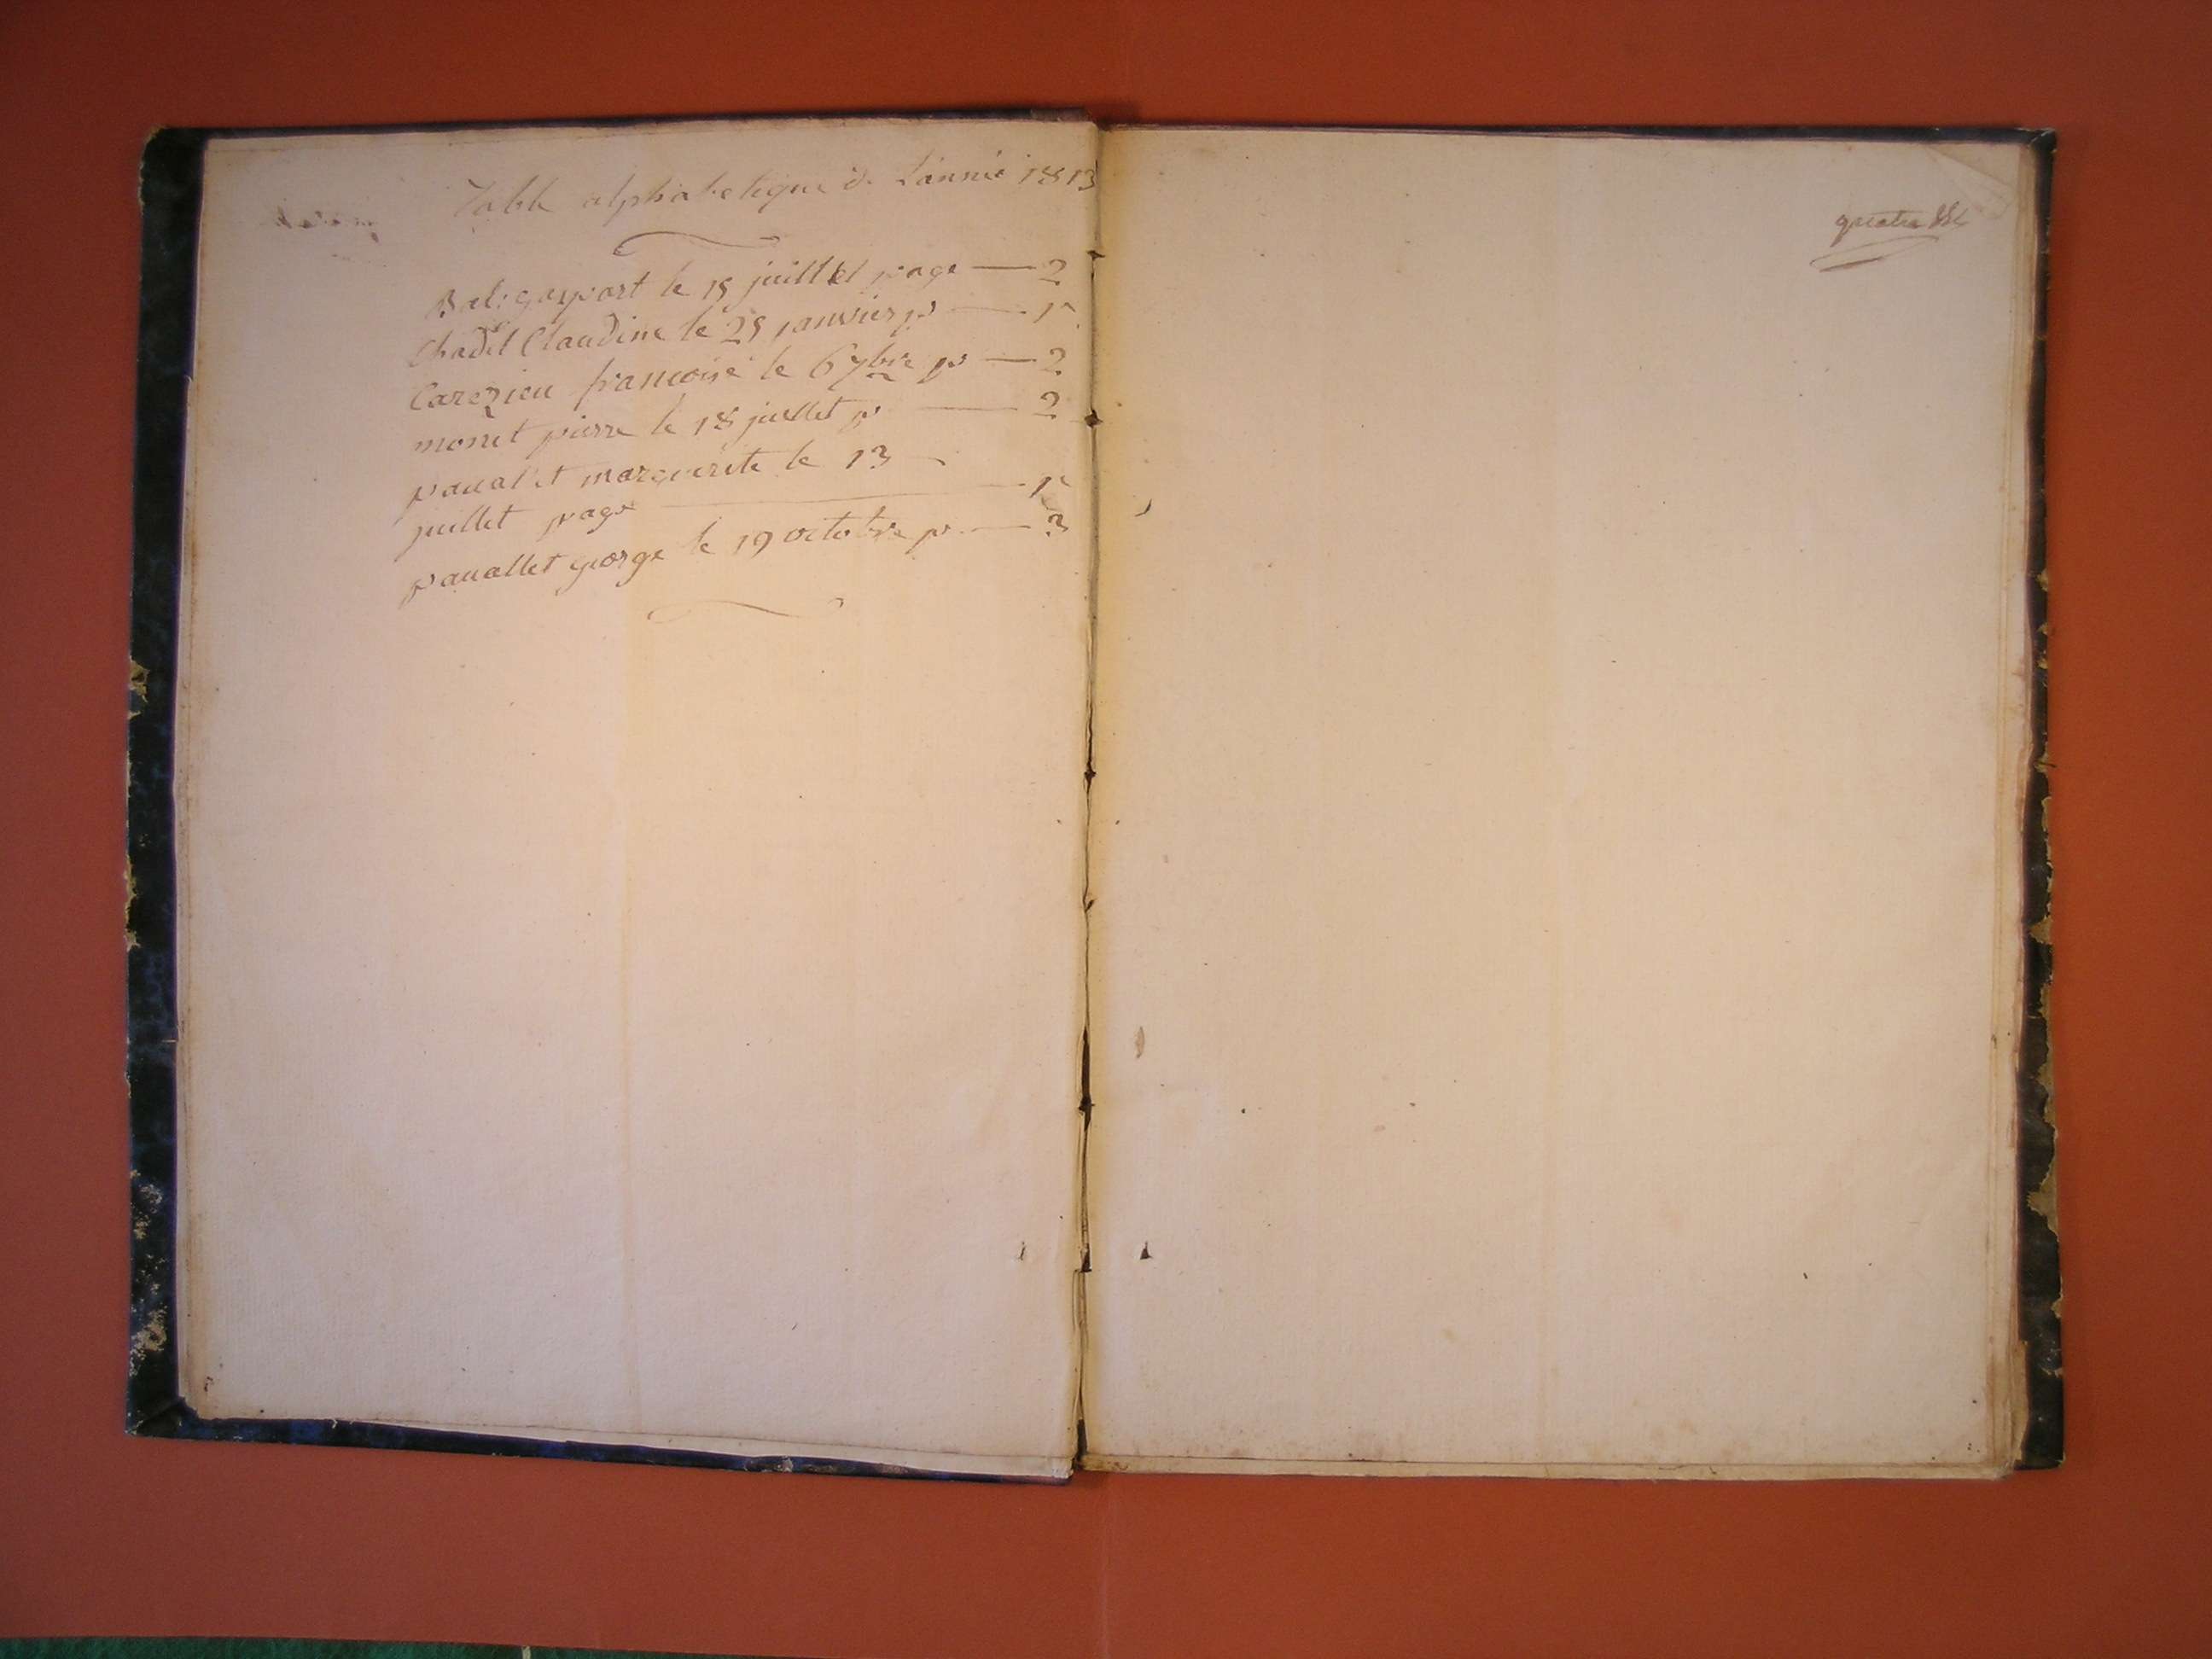 Table alphabetique de L'année 1813
Bal gaspart le 15 juillet page — 2
Chadel Claudine le 25 janvier p — 1r
Carezieu francoise le 6 7bre p — 2
monet pierre le 18 juillet p — 2
paual et marguerite le 13 —
juillet page — 1r
pauallet george le 19 octobre p — 3
quatre